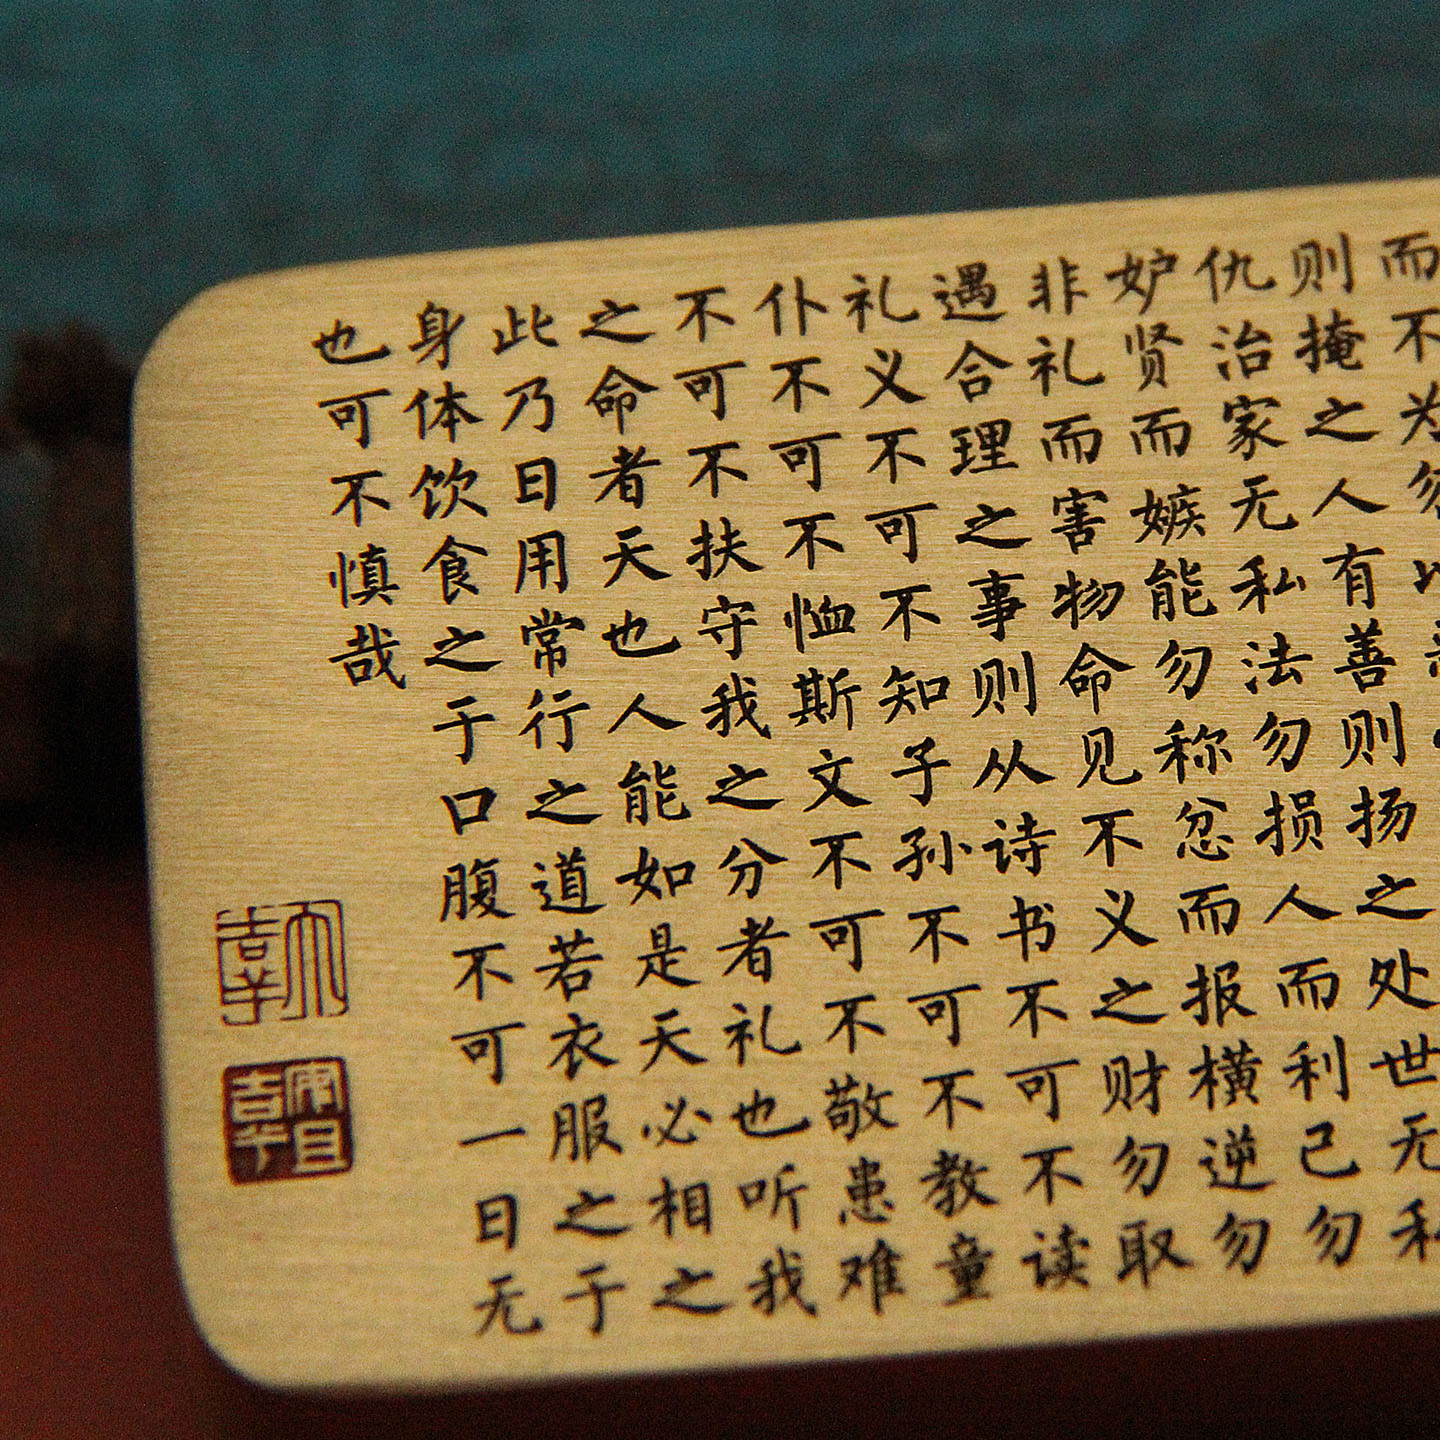 而不为勿
则掩之人有善则扬之处世无私
仇治家无私法勿损人而利己勿
妒贤而嫉能勿称忿而报横逆勿
非礼而害物命见不义之财勿取
遇合理之事则从诗书不可不读
礼义不可不知子孙不可不教童
仆不可不恤斯文不可不敬患难
不可不扶守我之分者礼也听我
之命者天也人能如是天必相之
此乃日用常行之道若衣服之于
身体饮食之于口腹不可一日无
也可不慎哉